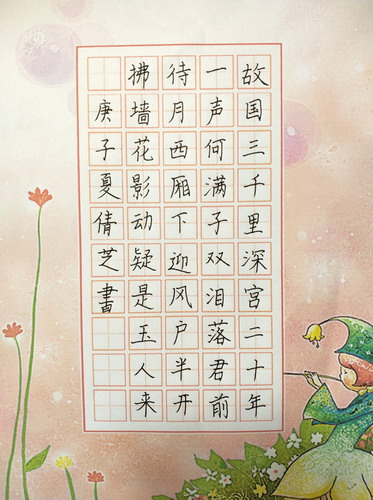 故国三千里深宫二十年
一声何满子双泪落君前
待月西厢下迎风户半开
拂墙花影动疑是玉人来
庚子夏倩芝書